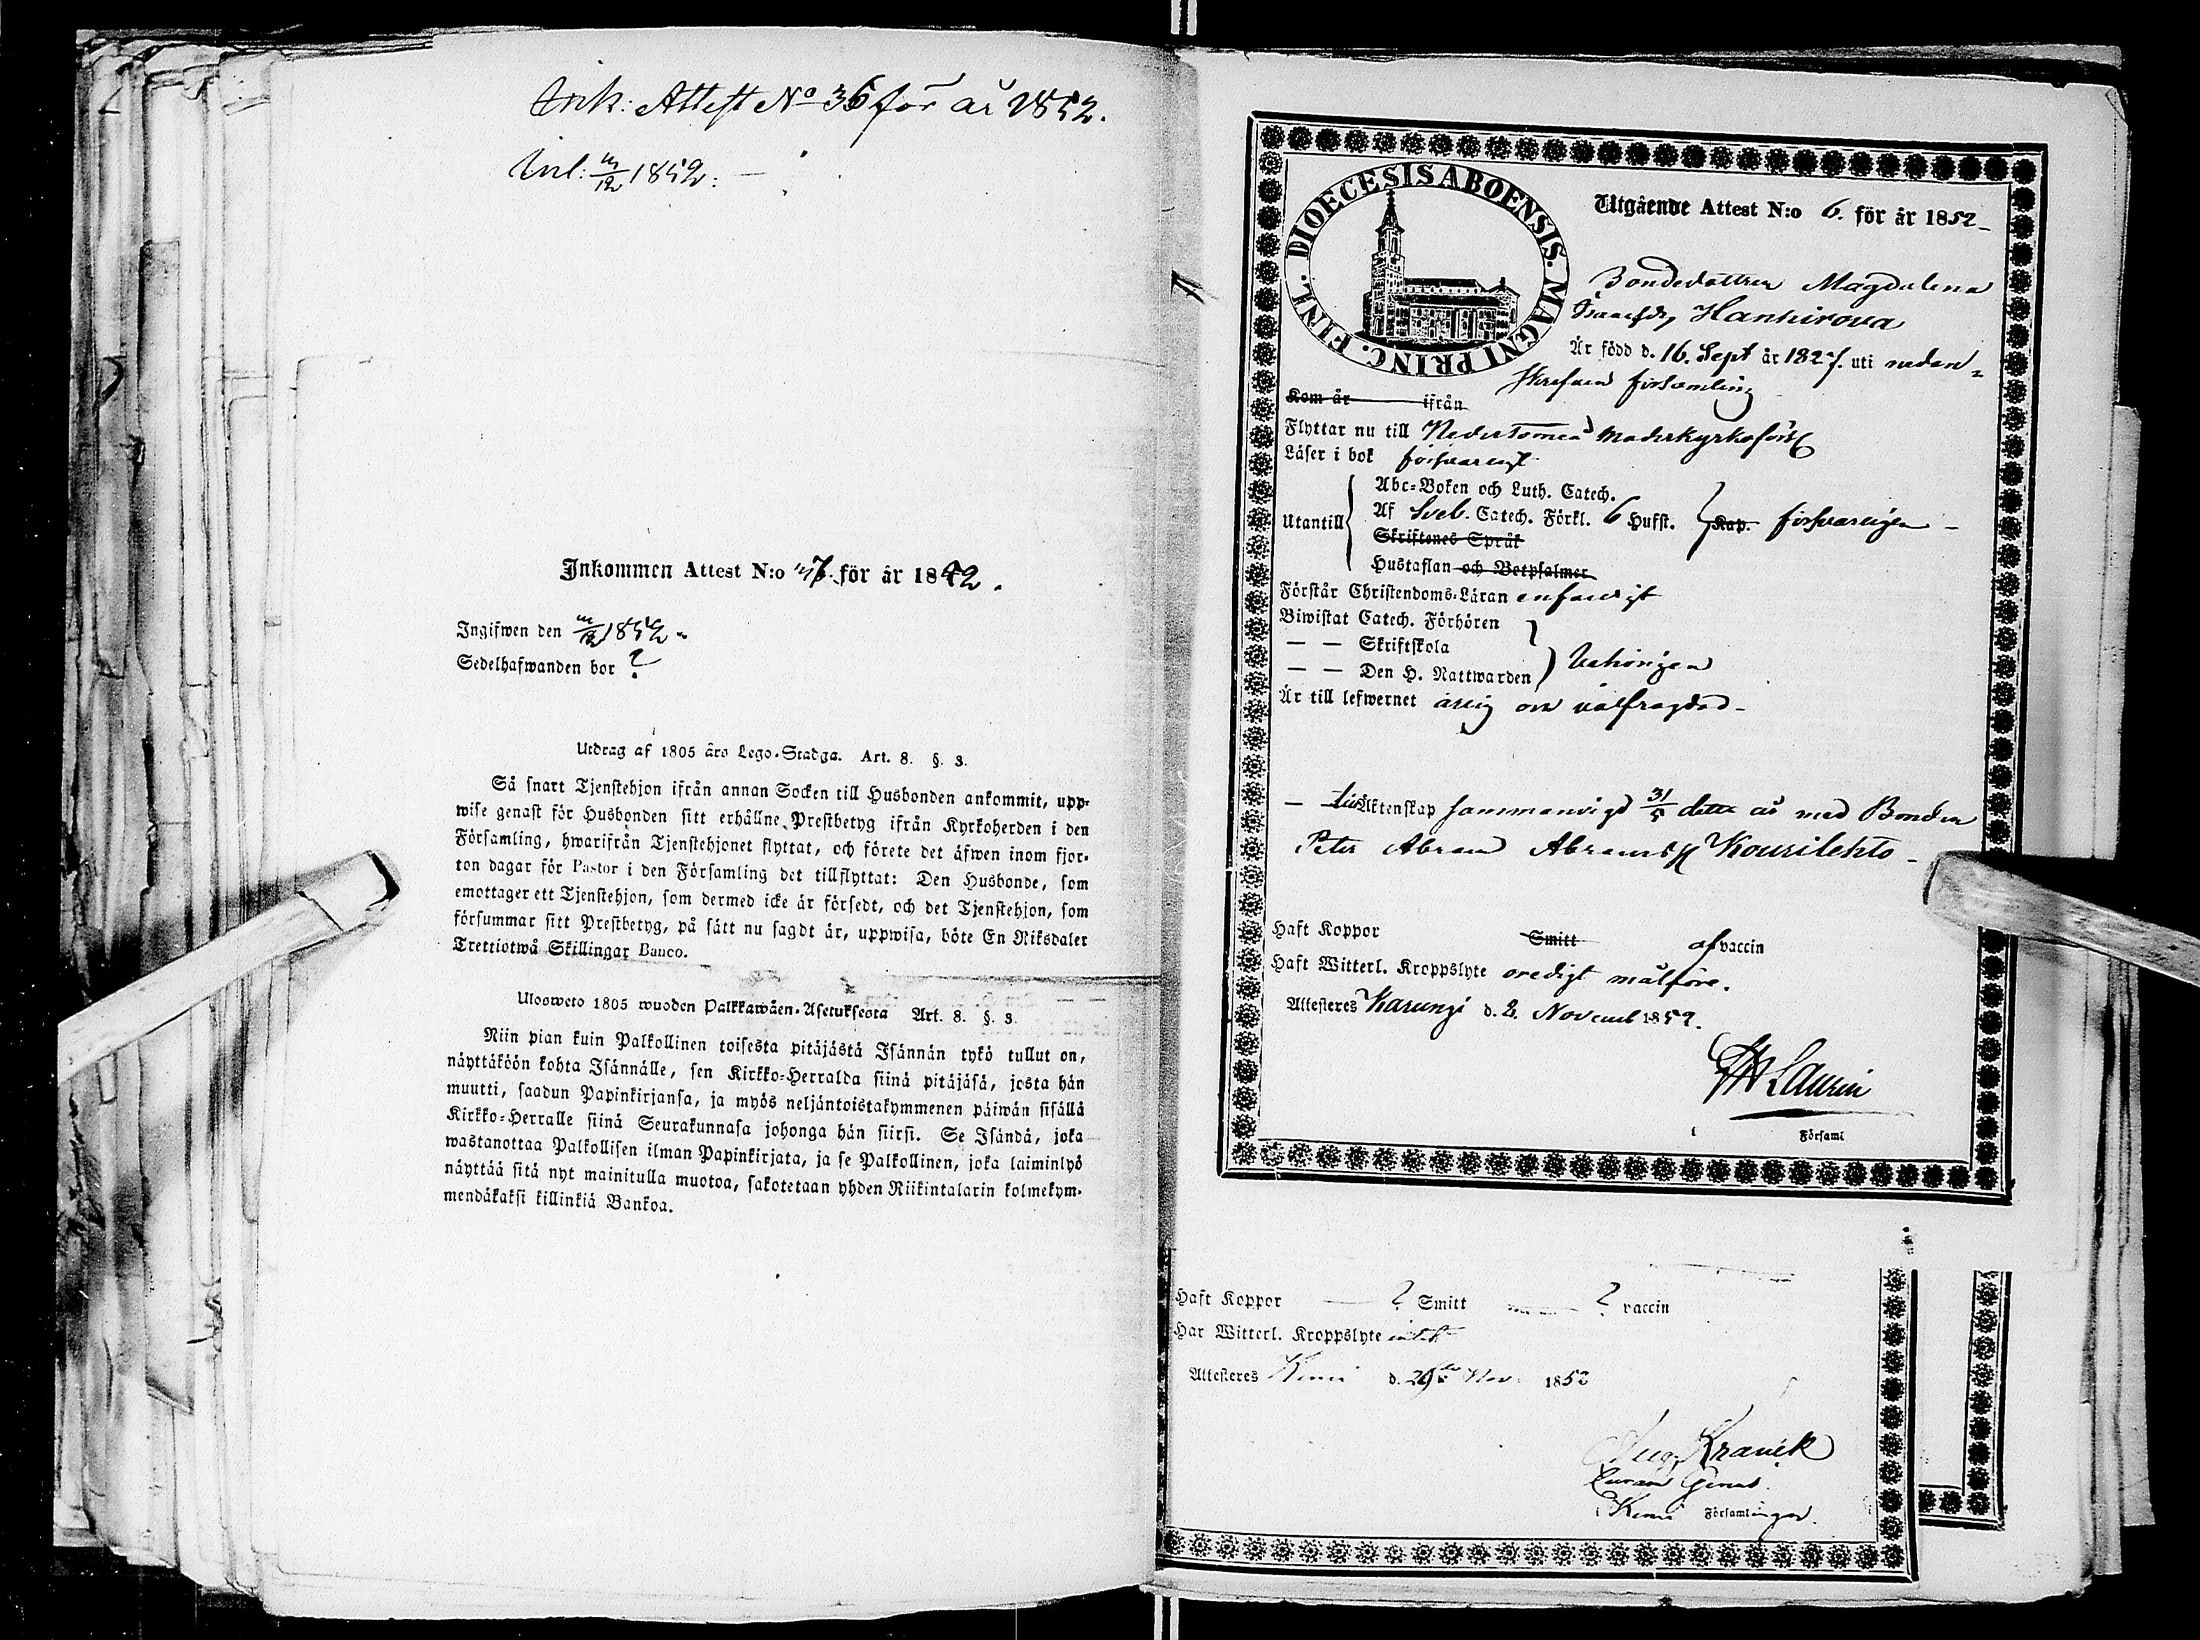 Ink: Attest No 36 för år 1852.
Inl: 1852:
Inkommen Attest N:o för år 1852.
Ingifwen den 1852
Sedelhafwanden bor ?
Utdrag af 1805 års Lego-Stadga. Art. 8. §. 3.
Så snart Tjenstehjon ifrån annan Socken till Husbonden ankommit, upp-
wise genast för Husbonden sitt erhållne Prestbetyg ifrån Kyrkoherden i den
Församling, hwarifrån Tjenstehjonet flyttat, och förete det äfwen inom fjor-
ton dagar för Pastor i den Församling det tillflyttat: Den Husbonde, som
emottager ett Tjenstehjon, som dermed icke är försedt, och det Tjenstehjon, som
försummar sitt Prestbetyg, på sätt nu sagdt är, uppwisa, böte En Riksdaler
Trettiotwå Skillingar Banco.
Ulosweto 1805 wuoden Palkkawäen-Asetuksesta Art. 8. §. 3.
Niin pian kuin Palkollinen toisesta pitäjästä Isännän tykö tullut on,
näyttäköön kohta Isännälle, sen Kirkko-Herralda siinä pitäjäsä, josta hän
muutti, saadun Papinkirjansa, ja myös neljäntoistakymmenen päiwän sisällä
Kirkko-Herralle siinä Seurakunnasa johonga hän siirsi. Se Isändä, joka
wastanottaa Palkollisen ilman Papinkirjata, ja se Palkollinen, joka laiminlyö
näyttää sitä nyt mainitulla muotoa, sakotetaan yhden Riikintalarin kolmekym-
mendäkaksi killinkiä Bankoa.
DIOECESIS ABOENSIS. MAGNI PRINC. FINL.
Utgående Attest N:o 6. för år 1852
Bondedottren Magdalena
Hankirova
Är född d. 16. Sept år 1827. uti nedan-
skrefven församling
Kom år ifrån
Flyttar nu till NederTorneå Moderkyrkoförs
Läser i bok försvarligt
Abc-Boken och Luth. Catech.
Utantill Af Sveb. Catech. Förkl. 6 Hufst. Kap. försvarligen
Skriftenes Språk
Hustaflan och Botpsalmer
Förstår Christendoms-Läran enfaldigt
Biwistat Catech. Förhören
— — Skriftskola
— — Den H. Nattwarden behörigen
Är till lefwernet ärlig och välfrägdad
— till Äktenskap sammanvigd 31/5 detta år med Bonden
Peter Abram Abramss Kourilehto
Haft Koppor Smitt af vaccin
Haft Witterl. Kroppslyte oredigt målföre.
Attesteras Karungi d. 2. Novemb 1852.
Laurin
i Församl
Haft Koppor ? Smitt ? vaccin
Har Witterl. Kroppslyte intet
Attesteras Kemi d. 29 Nov. 1852
Aug. Kranck
i Kemi Församlingar.